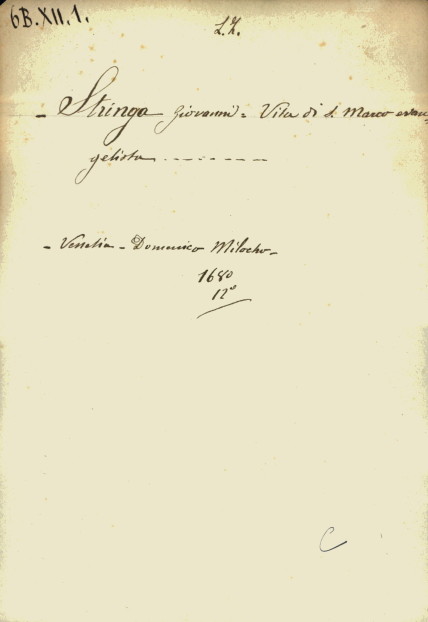 6B.XII.1.
L.Z.
- Stringa Giovanni = Vita di S. Marco evan-
gelista - - - - - - -
- Venetia - Domenico Milocho -
1680
12°
C